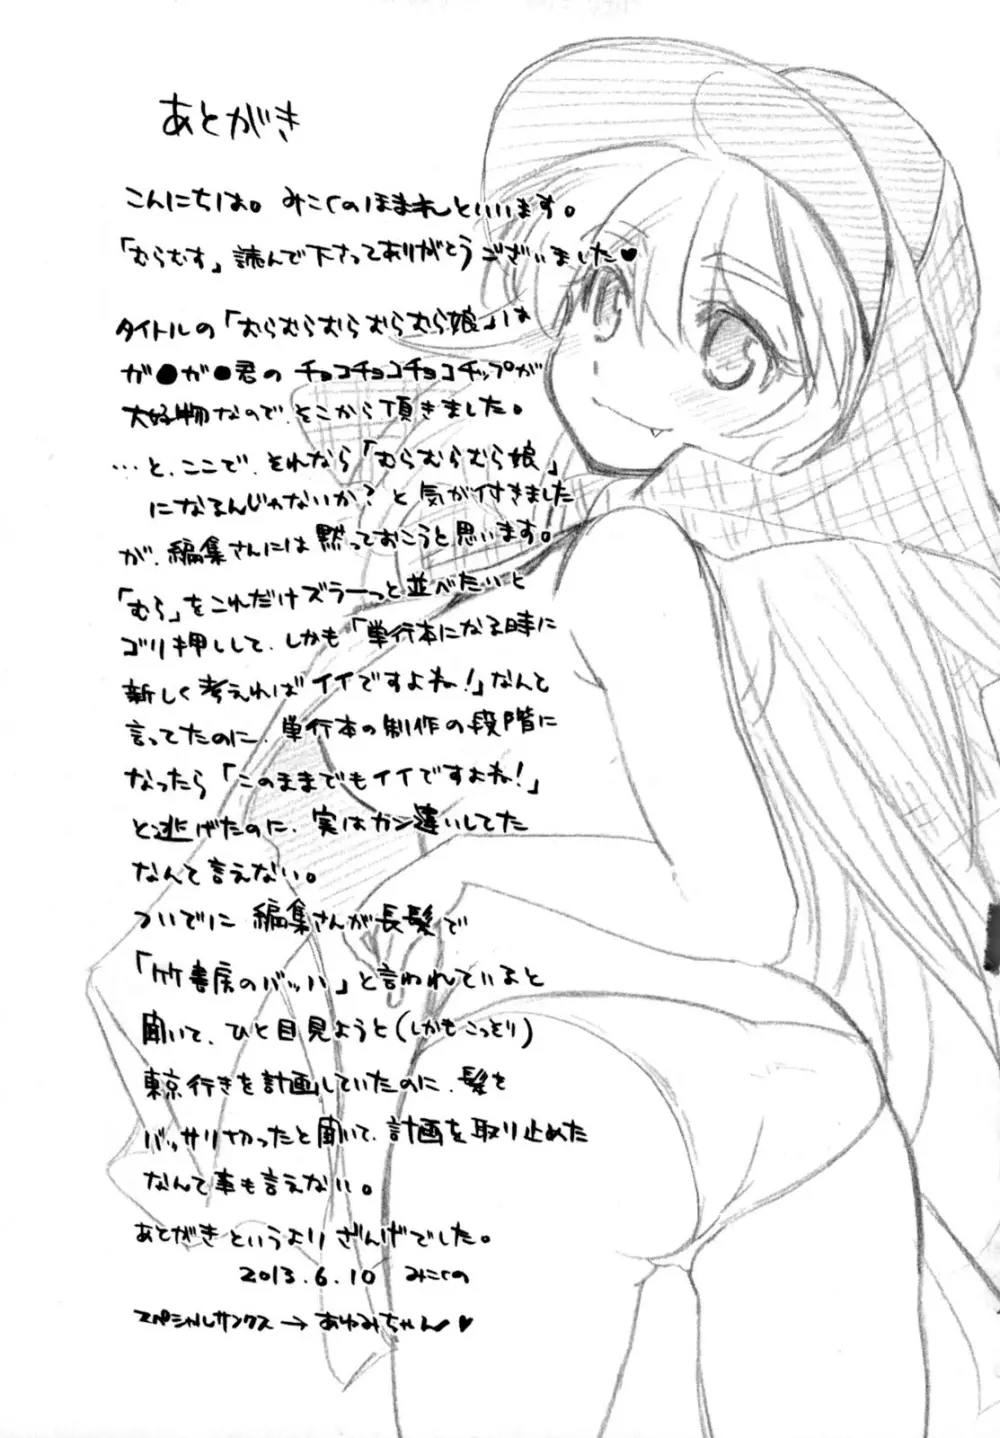 あとがき
こんにちは。みこくのほまれといいます。
「むらむす」読んで下さってありがとうございました♥
タイトルの「むらむらむらむらむら娘」は
ガ●ガ●君のチョコチョコチョコチップが
大好物なので、そこから頂きました。
…と、ここで、それなら「むらむらむら娘」
になるんじゃないか?と気が付きました
が、編集さんには黙っておこうと思います。
「むら」をこれだけズラーっと並べたいと
ゴリ押しして、しかも「単行本になる時に
新しく考えればイイですよね!」なんて
言ってたのに、単行本の制作の段階に
なったら「このままでもイイですよね!」
と逃げたのに、実はカン違いしてた
なんて言えない。
ついでに編集さんが長髪で
「竹書房のバッハ」と言われていると
聞いて、ひと目見ようと(しかもこっそり)
東京行きを計画していたのに、髪を
バッサリ切ったと聞いて、計画を取り止めた
なんて事も言えない。
あとがきというよりざんげでした。
2013.6.10 みこくの
スペシャルサンクス→あゆみちゃん♥